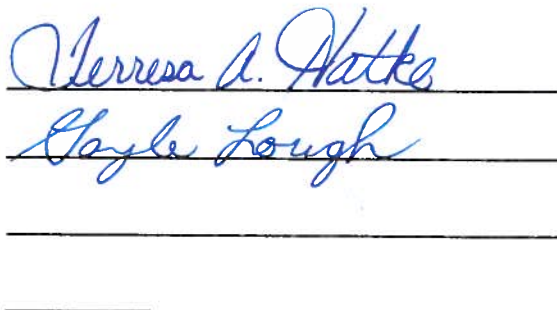 Terresa A. Hatke
Gayle Lough